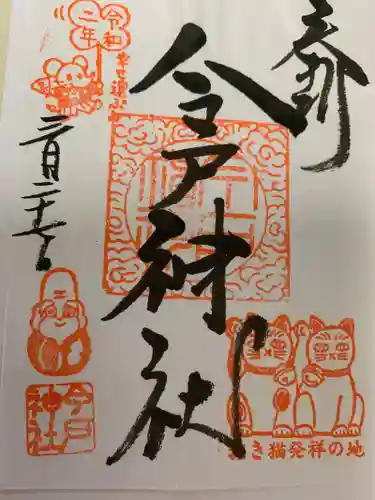 奉拝
今戸神社
令和
二年
幸せ運ぶ
三月二十
今戸
神社
招き猫発祥の地